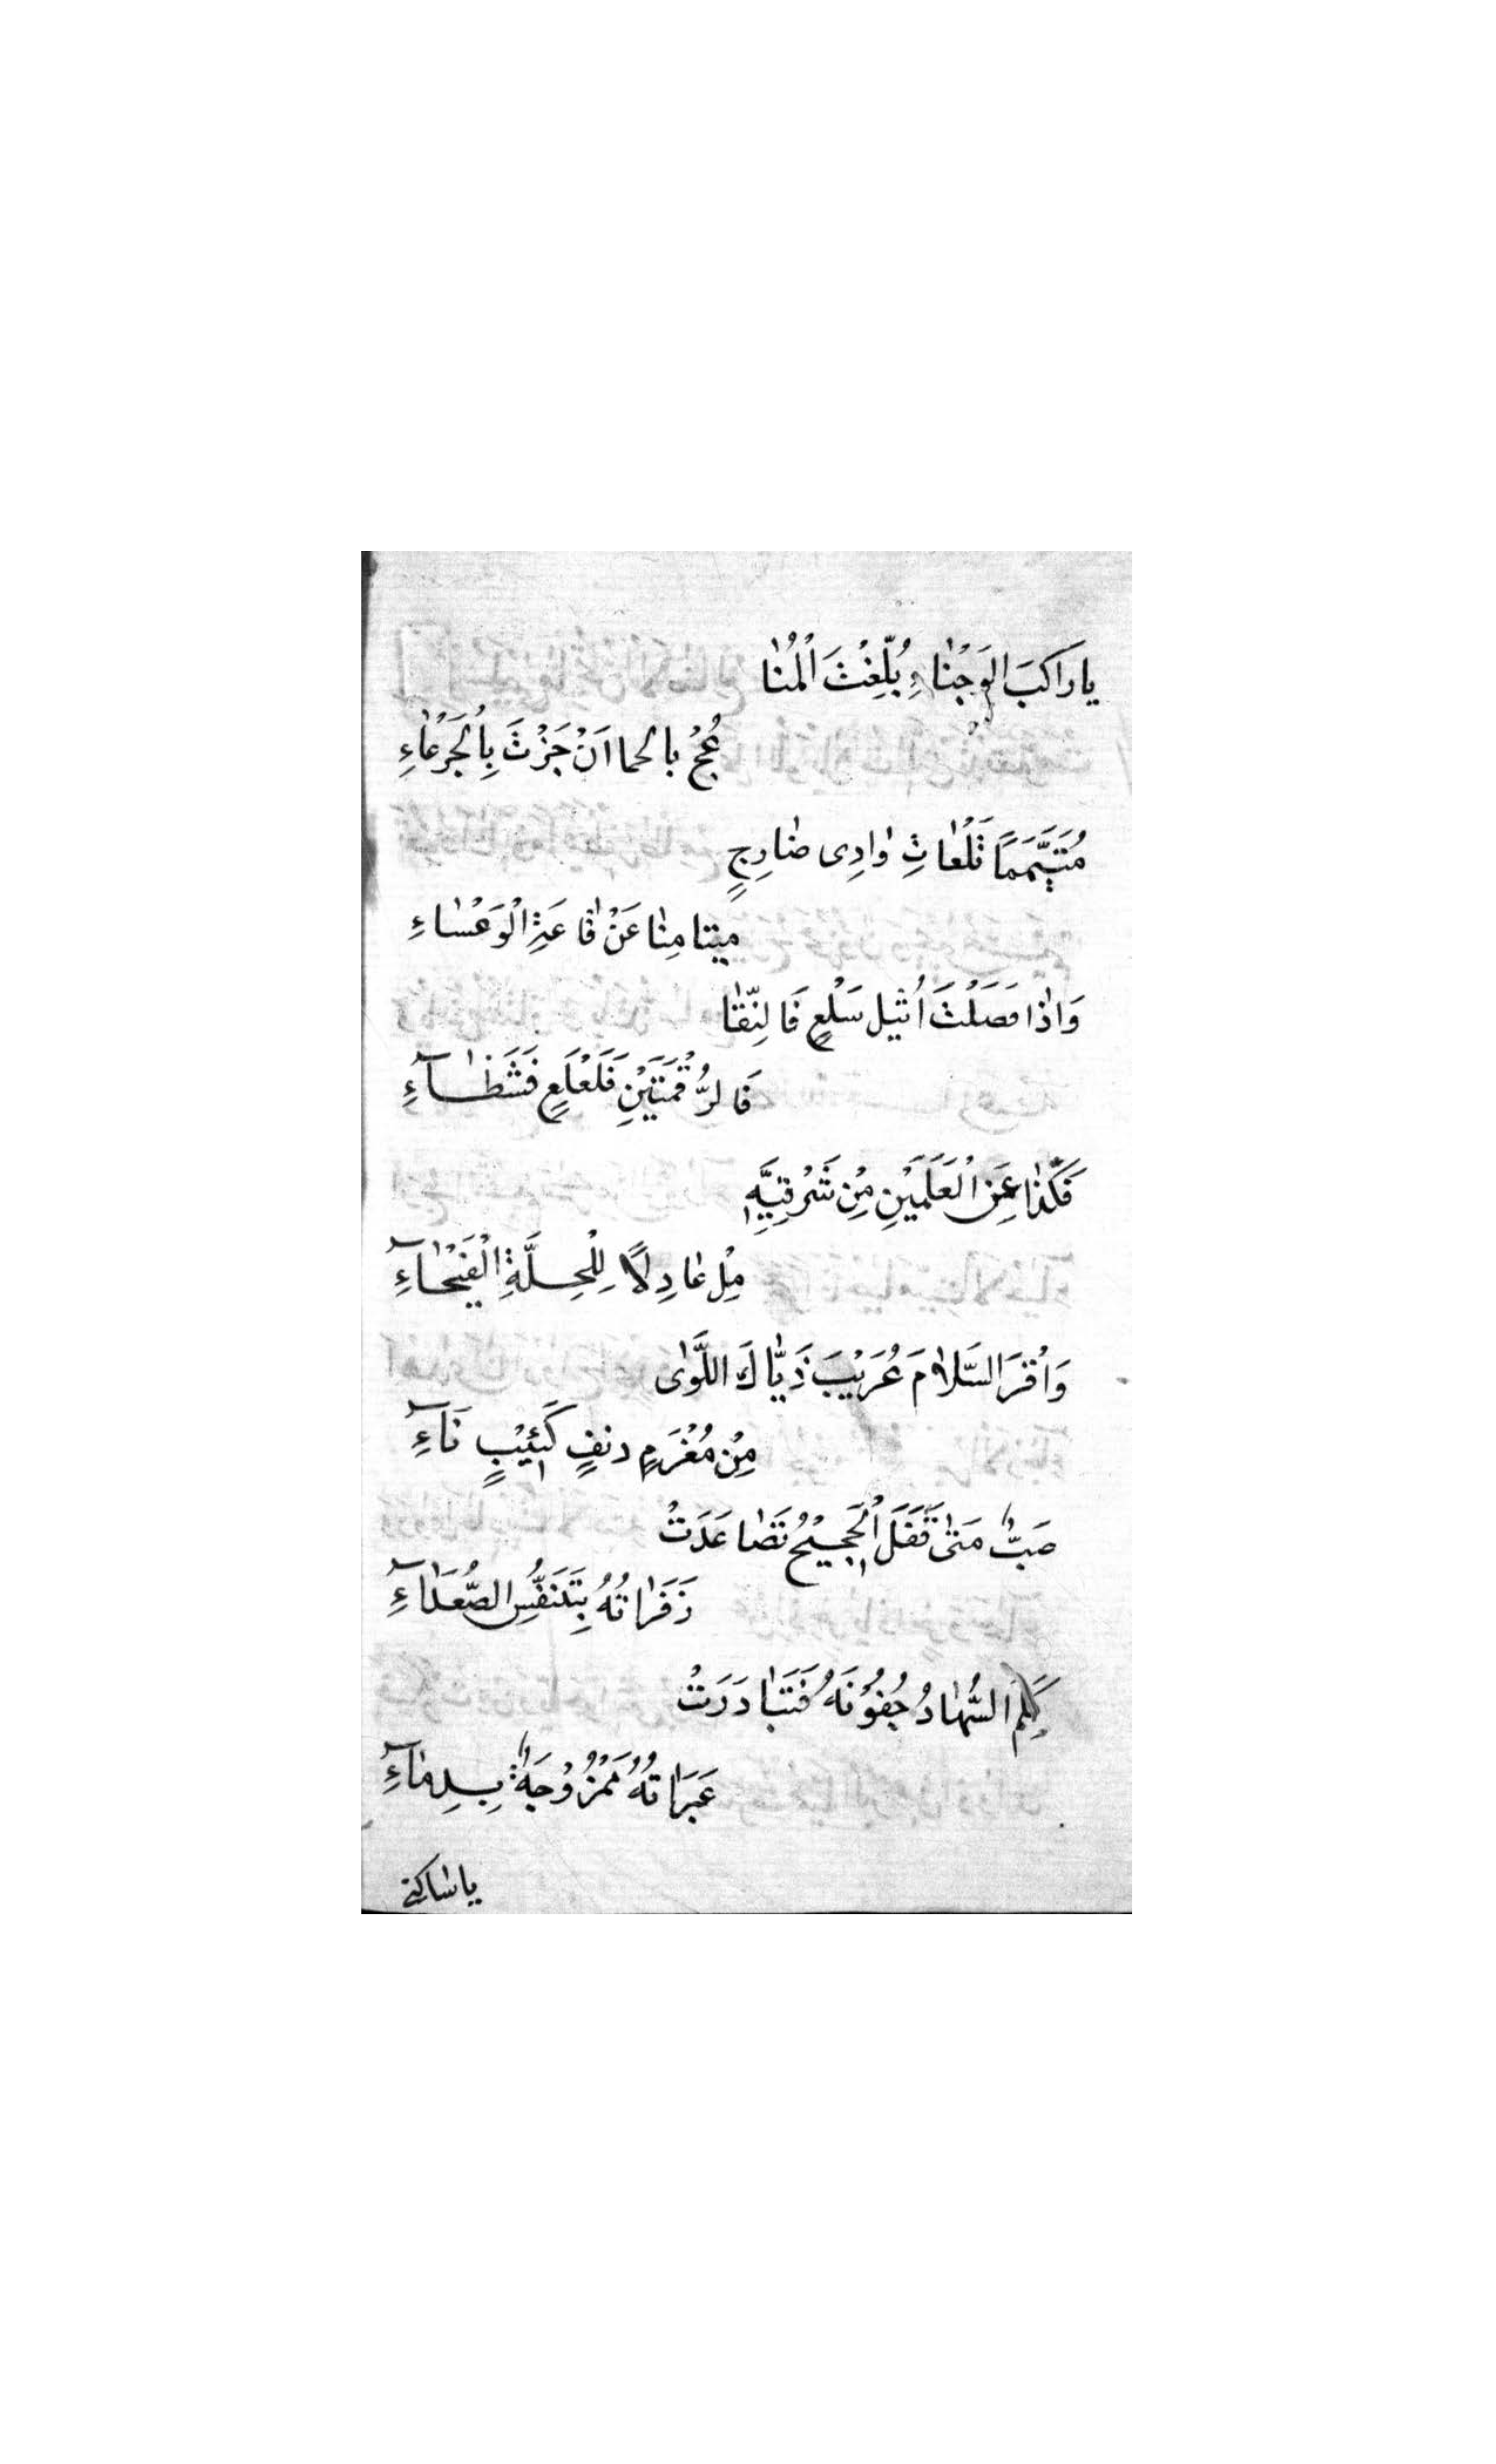 يا رَاكبَ الوَجْنٰاءِ بُلِّغْتَ الْمُنٰا
عُجْ بالحما اَنْ جَزْتَ بِاُلجَرْعٰاءِ
مُتَيَمِّمَاً تَلَعٰاتِ وٰادِى ضٰارِجٍ
ميتا مِنٰا عَنْ قٰاعَةِ الْوَعْسٰاءِ
وَاذٰا وَصَلْتَ اُثيل سَلْعٍ فَالنِّقٰا
فَالرُّقْمَتَيْنِ فَلَعْلَعٍ فَشَظٰآءِ
فَكَذٰا عَنِ الْعَلَمَيْنِ مِنْ شَرْقِيَّهِ
مِلْ عٰادِلاً لِلْحِلَّةِ الْفَيْحٰآءِ
وَاْقرَ السَّلاٰمَ عُرَيْبَ ذَيّٰاكَ اللَّوٰى
مِنْ مُغْرَمٍ دنفٍ كَئيْبٍ نَآءِ
صَبٌّ مَتٰى قَفَلَ اُلحَجيْجُ تَصٰاعَدَتْ
زَفَرٰاتُهُ بِتَنَفُّسِ الصُّعَدٰآءِ
كَلِمَ السُّهٰادُ جُفُوْنَهُ فَتَبٰادَرَتْ
عَبَرٰاتُهُ مَمْزُوْجَةً بِدِمٰآءِ
يا سٰاكِنى